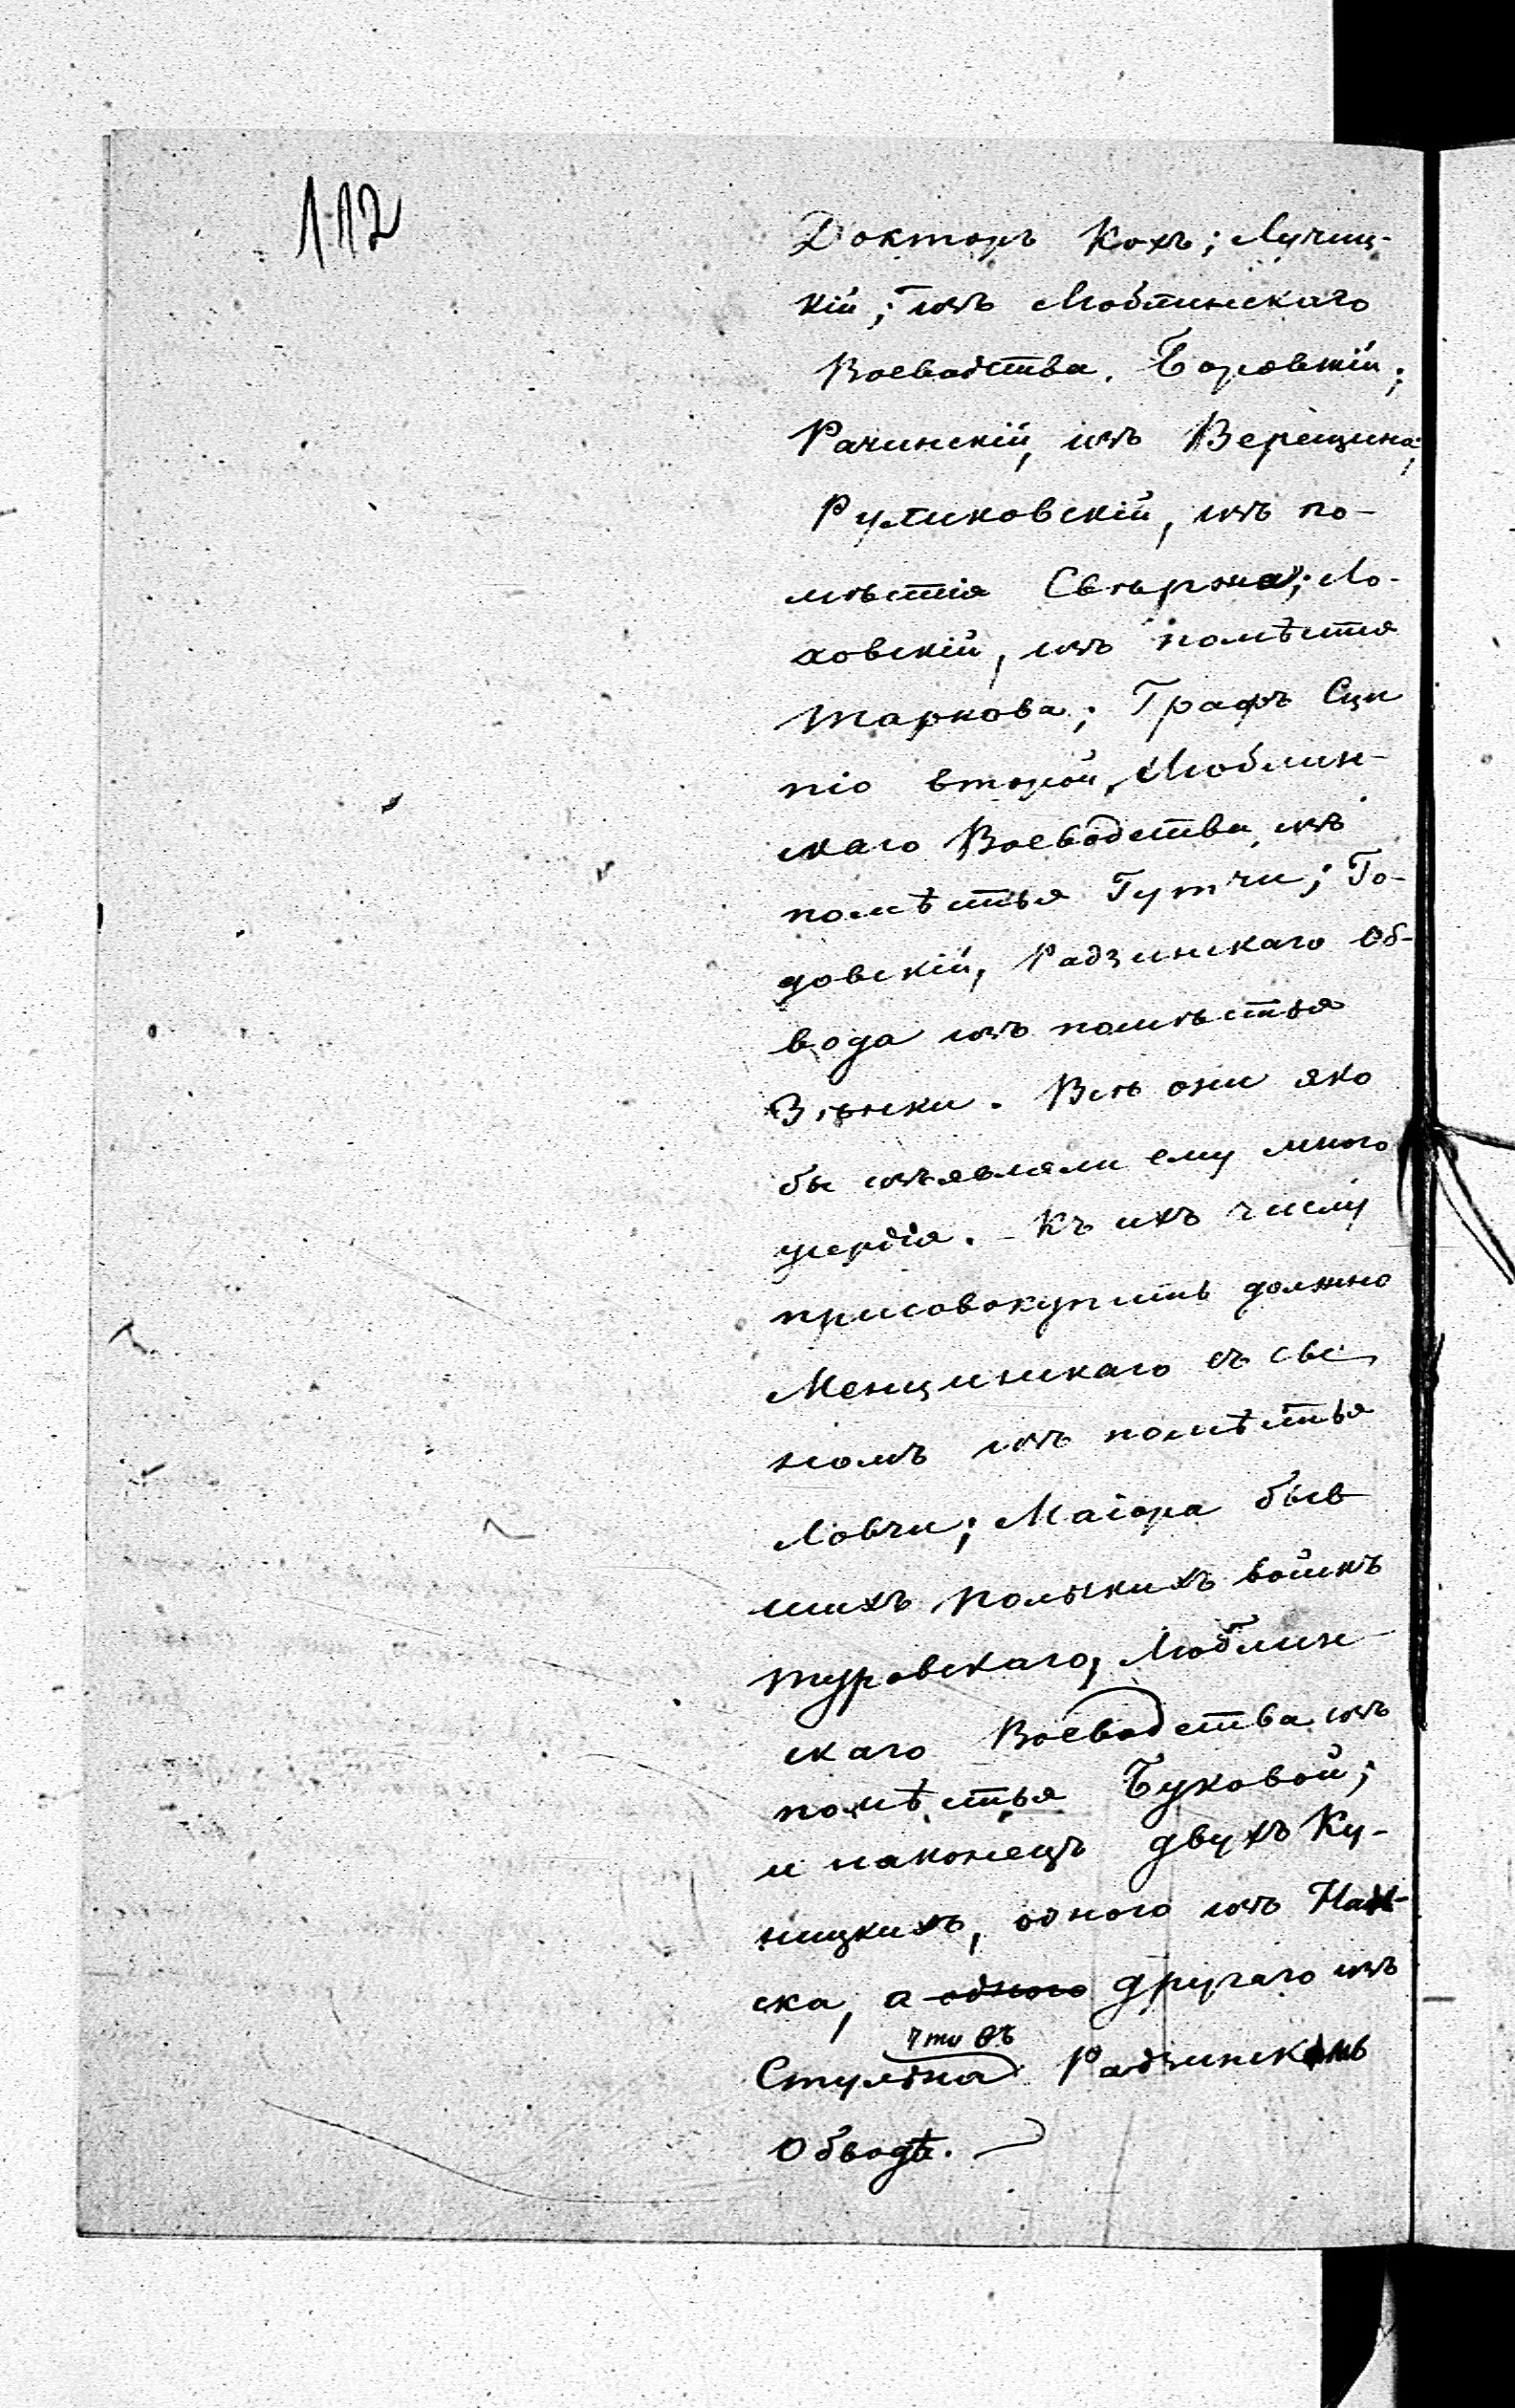 112
Докторъ Кохъ; Лучиц-
кій; изъ Люблинскаго
Воеводства. Боровскій;
Рачинскій, изъ Верещина;
Руликовскій, изъ по-
мѣстія Свѣржа; Ло-
ховскій, изъ помѣстія
Таркова; Графъ Сци
піо второй, Люблин-
скаго Воеводства, изъ
помѣстья Гутчи; Го-
довскій, Радзинскаго Об-
вода изъ помѣстья
Зѣнки. Всѣ они яко
бы изъявляли ему много
усердія. - Къ ихъ числу
присовокупить должно
Менцинскаго съ сы
номъ изъ помѣстья
Ловчи; Маіора быв
шихъ польскихъ войскъ
Туровскаго, Люблин-
скаго Воеводства изъ
помѣстья Буковой;
и наконецъ двухъ Ку-
ницкихъ, одного изъ
ска, а одного другаго изъ
что въ
Стулна Радзинскомъ
Обводѣ.